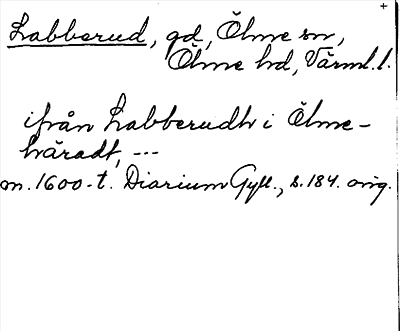 +
Labberud, gd, Ölme sn,
Ölme hd, Värml. l.
ifrån Labberudh i Ölme-
häradt, ---
m. 1600-t. Diarium Gyll., s. 184. orig.